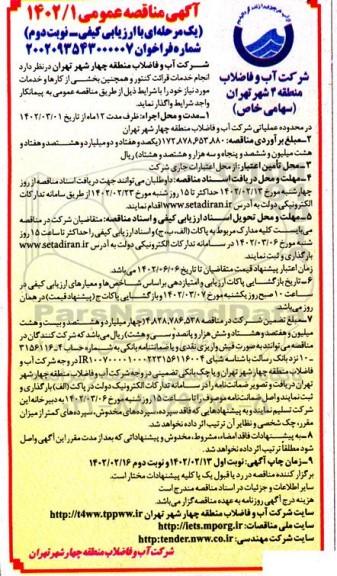 آگهی مناقصه عمومی ۱۴۰۲/۱
(یک مرحله‌ای با ارزیابی کیفی - نوبت دوم)
شماره فراخوان ۲۰۰۲۰۹۳۵۶۳۰۰۰۰۰۷
شرکت آب و فاضلاب
منطقه ۴ شهر تهران
(سهامی خاص)
شرکت آب و فاضلاب منطقه چهار شهر تهران در نظر دارد
انجام خدمات قرائت کنتور و همچنین بخشی از کارها و خدمات
مورد نیاز خود را با شرایط ذیل از طریق مناقصه عمومی به پیمانکار
واجد شرایط واگذار نماید.
۱- مدت و محل اجرا: ظرف مدت ۱۲ ماه از تاریخ ۱۴۰۲/۰۳/۰۱
در محدوده عملیاتی شرکت آب و فاضلاب منطقه چهار شهر تهران
۲- مبلغ برآوردی مناقصه: ۱۷۲,۸۷۸,۶۵۳,۸۸۰ (یکصد و هفتاد و دو میلیارد و هشتصد و هفتاد و
هشت میلیون و ششصد و پنجاه و سه هزار و هشتصد و هشتاد) ریال
۳- محل تأمین اعتبار: از محل اعتبارات جاری شرکت
۴- مهلت و محل دریافت اسناد مناقصه: داوطلبان می‌توانند جهت دریافت اسناد مناقصه از روز
چهارشنبه مورخ ۱۴۰۲/۰۲/۱۳ حداکثر تا ۱۵ روز شنبه مورخ ۱۴۰۲/۰۲/۲۳ از طریق سامانه تدارکات
الکترونیکی دولت به آدرس www.setadiran.ir اقدام نمایند.
۵- مهلت و محل تحویل اسناد ارزیابی کیفی و اسناد مناقصه: متقاضیان شرکت در مناقصه
می‌بایست کلیه مدارک مربوط به پاکات (الف، ب، ج) و اسناد ارزیابی کیفی را حداکثر تا ساعت ۱۵ روز
شنبه مورخ ۱۴۰۲/۰۳/۰۶ در سامانه تدارکات الکترونیکی دولت به آدرس www.setadiran.ir
بارگذاری و ثبت نمایند.
زمان اعتبار پیشنهاد قیمت متقاضیان تا تاریخ ۱۴۰۲/۰۶/۰۶ می‌باشد.
۶- تاریخ بازگشایی پاکات ارزیابی و امتیازدهی براساس شاخص‌ها و معیارهای ارزیابی کیفی در
ساعت ۱۰ صبح روز یکشنبه مورخ ۱۴۰۲/۰۳/۰۷ و بازگشایی پاکات ج (پیشنهاد قیمت) در همان
روز می‌باشد.
۷- مبلغ تضمین شرکت در مناقصه ۴,۸۲۸,۷۸۶,۵۳۸ (چهار میلیارد و هشتصد و بیست و هشت
میلیون و هفتصد و هشتاد و شش هزار و پانصد و سی و هشت) ریال می‌باشد که شرکت کنندگان در
مناقصه می‌توانند به صورت فیش واریزی نقدی و یا ضمانتنامه بانکی به شماره حساب
فاضلاب منطقه چهار شهر تهران و یا چک بانکی تضمینی در وجه شرکت آب و فاضلاب منطقه چهار شهر
تهران دریافت و تصویر ضمانتنامه را در سامانه تدارکات الکترونیک دولت در پاکت (الف) بارگذاری و
ثبت نمایند و اصل ضمانتنامه مزبور را تا ساعت ۱۵ روز شنبه مورخ ۱۴۰۲/۰۳/۰۶ به دبیرخانه این
شرکت تسلیم نمایند و به پیشنهادهایی که فاقد سپرده، سپرده‌های مخدوش، سپرده‌های کمتر از میزان
مقرر، چک شخصی و نظایر آن ترتیب اثر داده نخواهد شد.
۸- به پیشنهادات فاقد امضاء، مشروط، مخدوش و پیشنهاداتی که بعد از مدت مقرر این آگهی واصل
شود مطلقاً ترتیب اثر داده نخواهد شد.
۹- زمان چاپ آگهی: نوبت اول ۱۴۰۲/۰۲/۱۳ و نوبت دوم ۱۴۰۲/۰۲/۱۶
برگزار کننده مناقصه در رد یا قبول یک یا کلیه پیشنهادات مختار است.
سایر اطلاعات و جزئیات در اسناد مناقصه مندرج است
هزینه درج آگهی روزنامه به عهده مناقصه گزار می‌باشد.
سایت شرکت آب و فاضلاب منطقه چهار شهر تهران http://t4ww.tppww.ir
سایت ملی مناقصات: http://iets.mporg.ir
سایت شرکت مهندسی: http:tender.nww.co.ir
شرکت آب و فاضلاب منطقه چهار شهر تهران